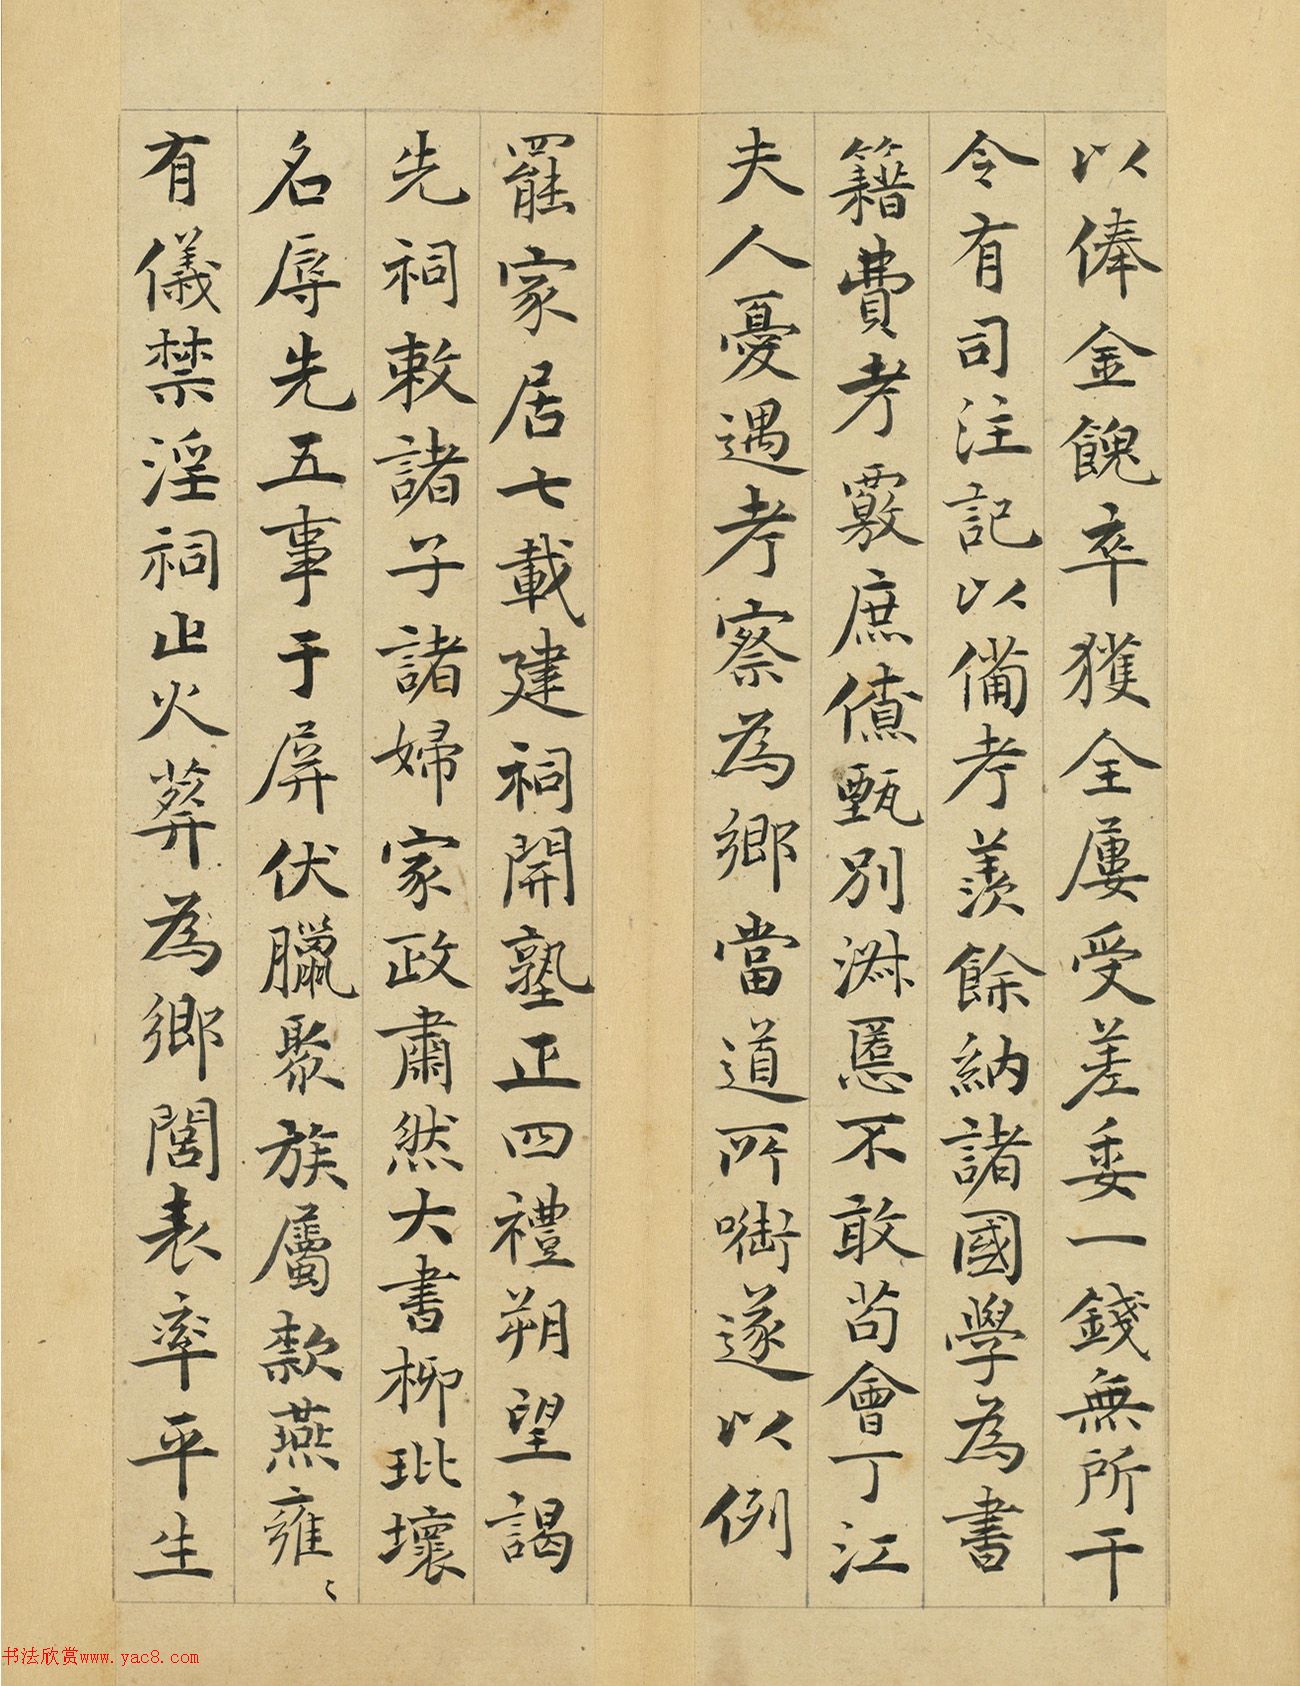 以俸金餽卒獲全屢受差委一錢無所干
令有司注記以備考羨餘納諸國學為書
籍費考覈庶僚甄別淑慝不敢苟會丁江
夫人憂遇考察為鄉當道所啣遂以例
罷家居七載建祠開塾正四禮朔望謁
先祠敕諸子諸婦家政肅然大書柳玭壞
名辱先五事于屏伏臘聚族屬款燕雍〻
有儀禁淫祠止火葬為鄉閭表率平生
书法欣赏www.yac8.com